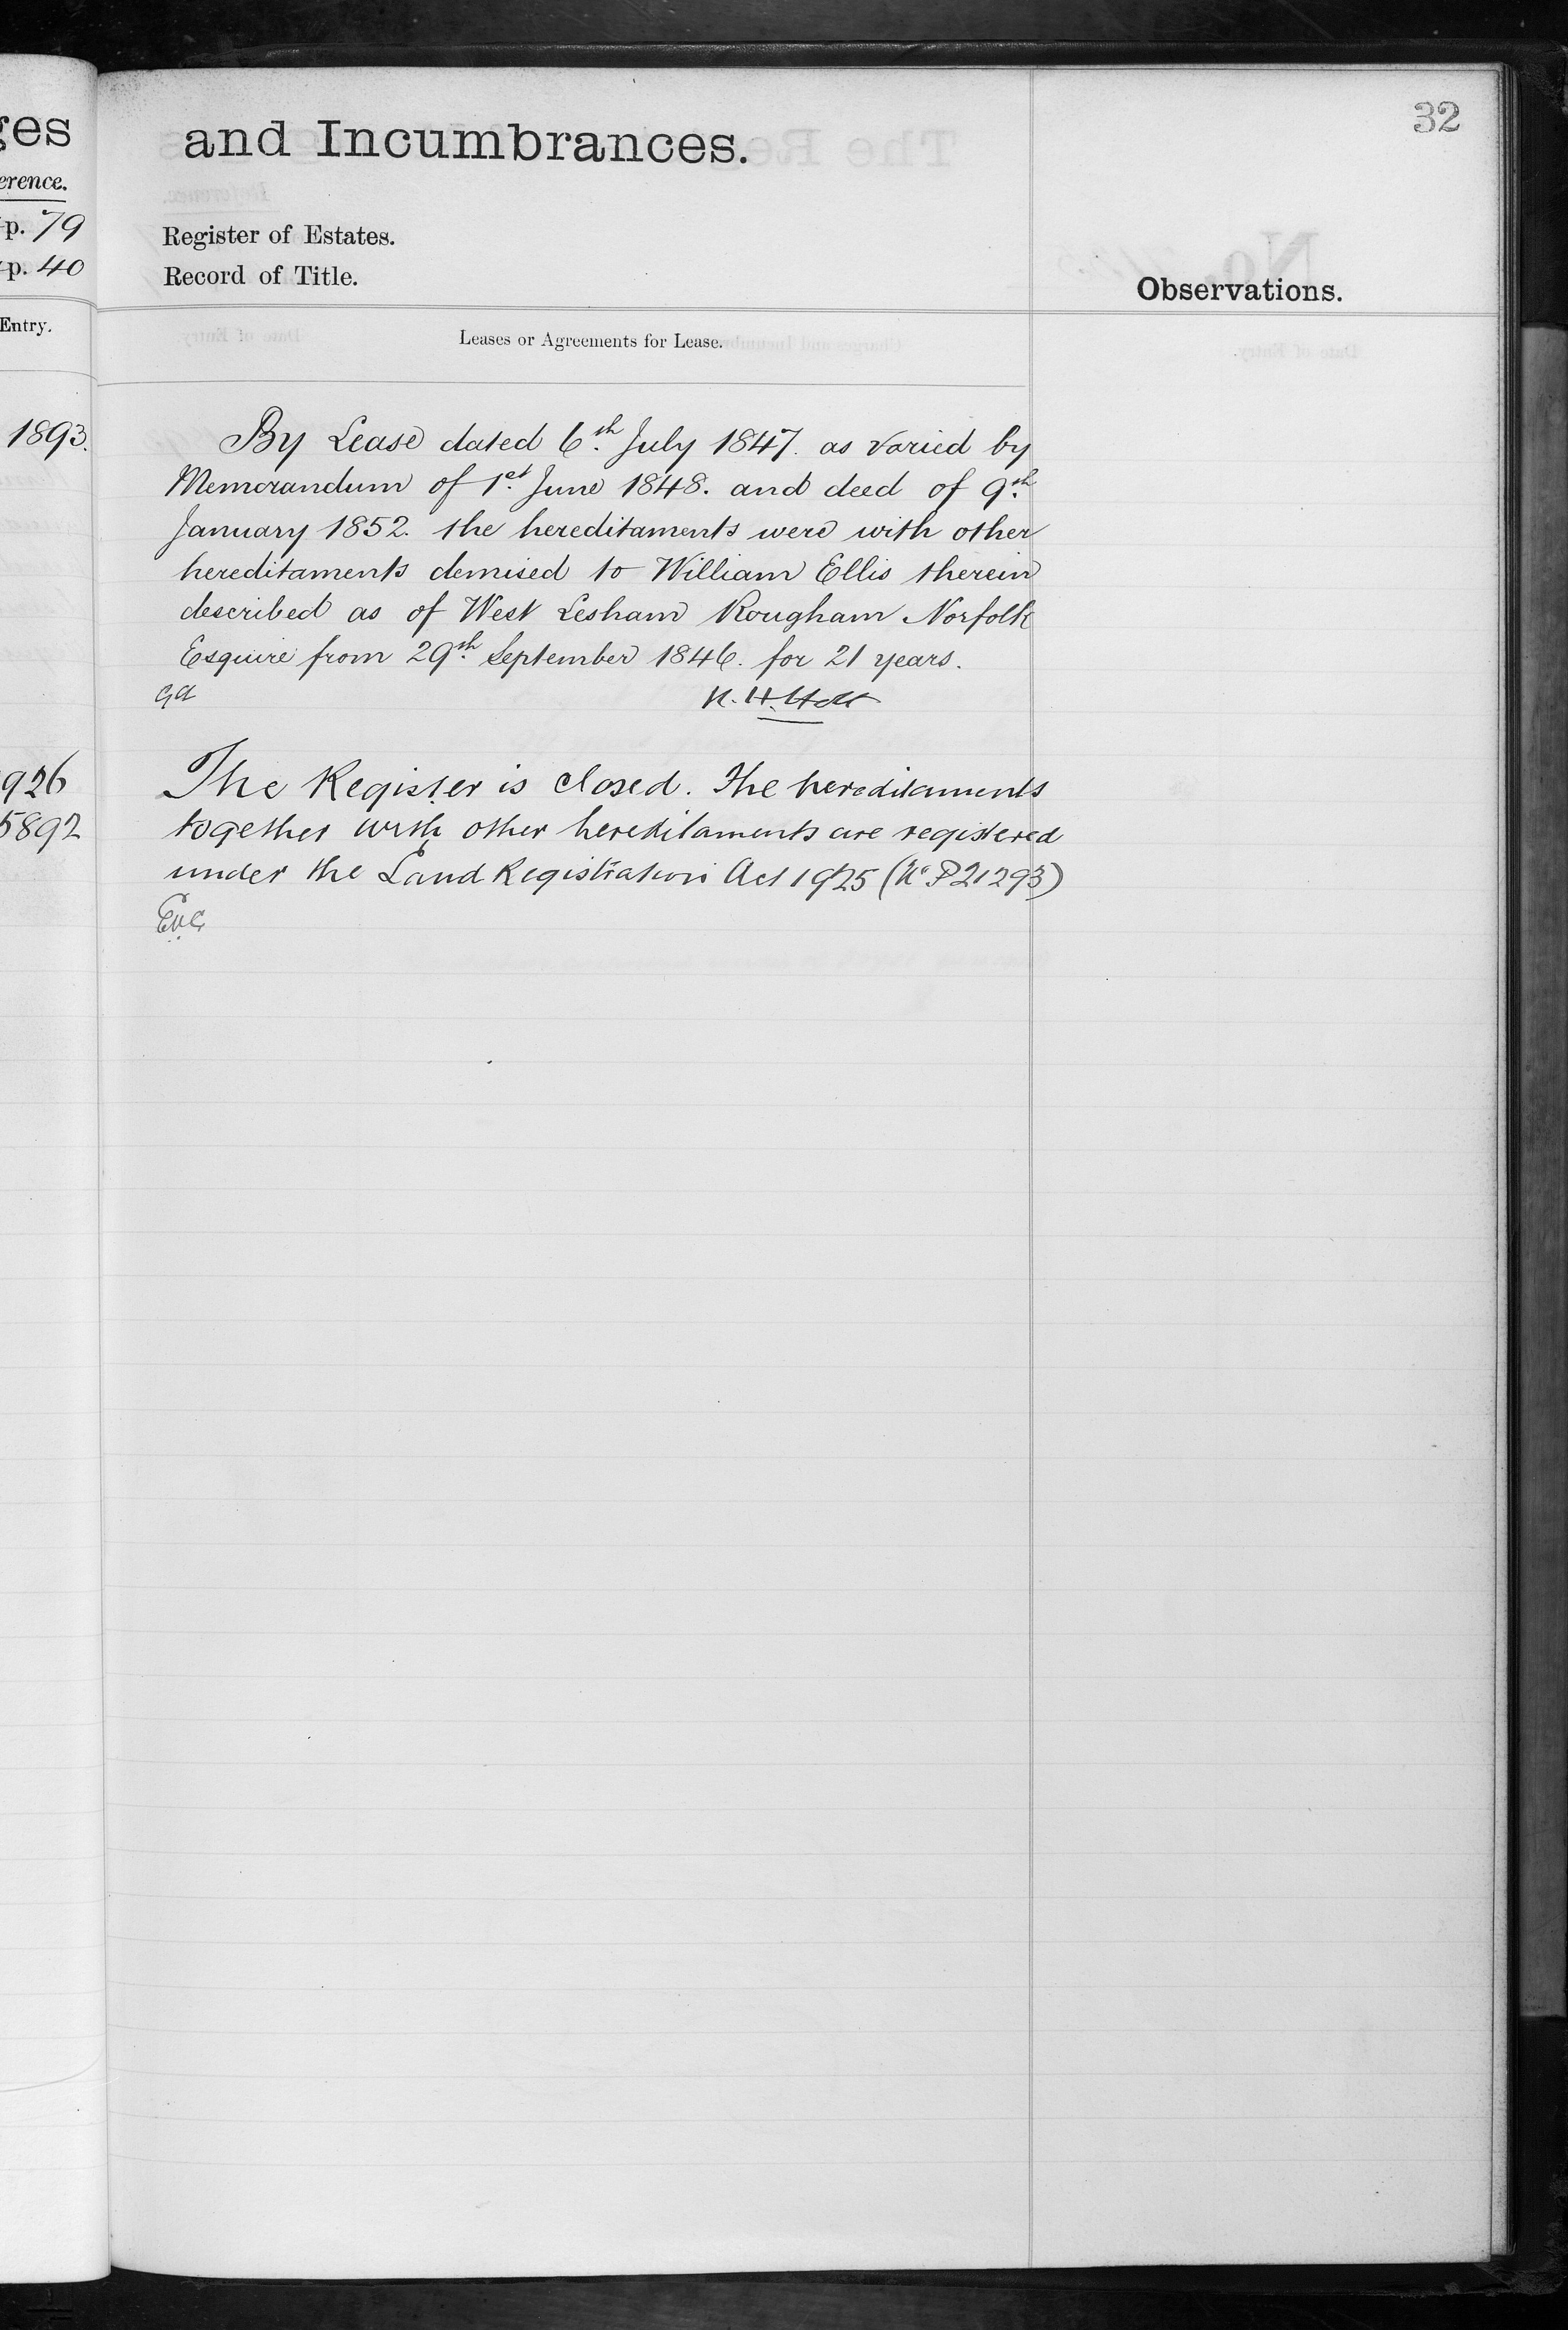 32
and Incumbrances.
Register of Estates.
Record of Title.
Observations.
Leases or Agreements for Lease.
By Lease dated 6th. July 1847. as varied by
Memorandum of 1st. June 1848. and deed of 9th.
January 1852. the hereditaments were with other
hereditaments demised to William Ellis therein
described as of West Lesham Rougham Norfolk
Esquire from 29th. September 1846. for 21 years.
The Register is closed. The hereditaments
together with other hereditaments are registered
under the Land Registration Act 1925 (No P21293)
ges
erence.
p. 79
p. 40
Entry.
1893.
926
5892